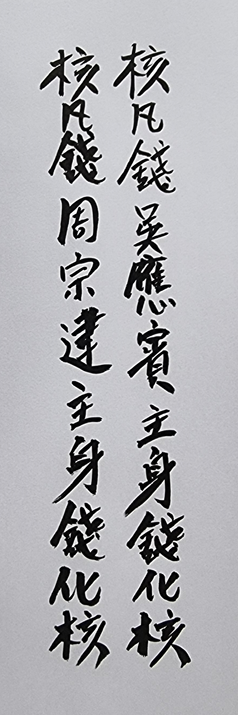 核凡錢吳應賓主身錢化核
核凡錢周宗達主身錢化核